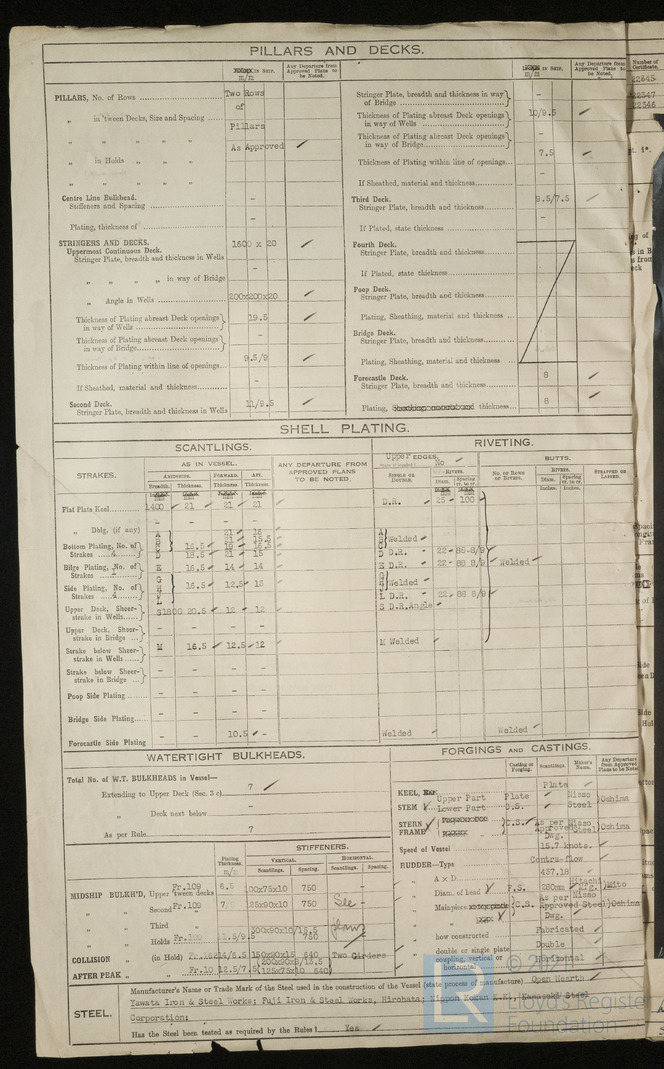 PILLARS AND DECKS.
IN SHIP. m/m
Any Departure from Approved Plans to be Noted.
PILLARS, No. of Rows Two Rows
of
„ in 'tween Decks, Size and Spacing Pillars
„ „ „ „ As Approved
„ in Holds „ „
„ „ „ „
Centre Line Bulkhead.
Stiffeners and Spacing -
Plating, thickness of -
STRINGERS AND DECKS.
Uppermost Continuous Deck.
Stringer Plate, breadth and thickness in Wells 1600 x 20
„ „ „ „ in way of Bridge -
„ Angle in Wells 200x200x20
Thickness of Plating abreast Deck openings in way of Wells 19.5
Thickness of Plating abreast Deck openings in way of Bridge -
Thickness of Plating within line of openings 9.5/9
If Sheathed, material and thickness -
Second Deck.
Stringer Plate, breadth and thickness in Wells 11/9.5
IN SHIP. m/m
Any Departure from Approved Plans to be Noted.
Stringer Plate, breadth and thickness in way of Bridge -
Thickness of Plating abreast Deck openings in way of Wells 10/9.5
Thickness of Plating abreast Deck openings in way of Bridge -
Thickness of Plating within line of openings 7.5
If Sheathed, material and thickness -
Third Deck.
Stringer Plate, breadth and thickness 9.5/7.5
If Plated, state thickness -
Fourth Deck.
Stringer Plate, breadth and thickness
If Plated, state thickness
Poop Deck.
Stringer Plate, breadth and thickness
Plating, Sheathing, material and thickness
Bridge Deck.
Stringer Plate, breadth and thickness
Plating, Sheathing, material and thickness
Forecastle Deck.
Stringer Plate, breadth and thickness 8
Plating, thickness 8
Number of Certificate.
22645
22347
22346
SHELL PLATING.
SCANTLINGS.
RIVETING.
STRAKES.
AS IN VESSEL.
AMIDSHIPS. FORWARD. AFT.
Breadth. Thickness. Thickness. Thickness.
ANY DEPARTURE FROM APPROVED PLANS TO BE NOTED.
Upper EDGES. No
SINGLE OR DOUBLE.
RIVETS.
Diam. Spacing cr. to cr.
BUTTS.
No. of Rows of Rivets.
RIVETS.
Diam. Spacing cr. to cr.
Inches. Inches.
STRAPPED OR LAPPED.
Flat Plate Keel 1400 21 21 21 D.R. 25 100
„ Dblg. (if any) - - - -
Bottom Plating, No. of Strakes 4
A 21 16 A
B 21 15.5 B Welded
16.5 19 16.5
D 16.5 21 15 D D.R. 22 88-8/9
Bilge Plating, No. of Strakes E 16.5 14 14 E D.R. 22 88 8/9 Welded
Side Plating, No. of Strakes 4
G 16.5 12.5 13 G Welded
L L D.R. 22 88 8/9
Upper Deck, Sheerstrake in Wells S 1800 20.5 12 12 S D.R.Angle
Upper Deck, Sheerstrake in Bridge - - - -
Strake below Sheerstrake in Wells M 16.5 12.5 12 M Welded
Strake below Sheerstrake in Bridge - - - -
Poop Side Plating - - - -
Bridge Side Plating - - - -
Forecastle Side Plating - - 10.5 - Welded Welded
WATERTIGHT BULKHEADS.
Total No. of W.T. BULKHEADS in Vessel—
Extending to Upper Deck (Sec. 3 c) 7
„ Deck next below -
As per Rule 7
Plating Thickness. m/m
STIFFENERS.
VERTICAL. HORIZONTAL.
Scantlings. Spacing. Scantlings. Spacing.
MIDSHIP BULKH'D, Upper 'tween decks Fr.109 100x75x10 750 -
„ „ Second „ Fr.109 125x90x10 750 See -
„ „ Third „
„ „ Holds 300x90x10/16.5 750
COLLISION „ (in Hold) 150x90x15 640 Two Girders
200x90x8/13.5
AFTER PEAK „ „ Fr.10 12.5/7.5 125x75x10 640
FORGINGS AND CASTINGS.
Casting or Forging. Scantlings. Maker's Name. Any Departure from Approved Plans to be Noted
KEEL, Plate
STEM Upper Part Plate Nisso Oshima
Lower Part C.S. Steel
STERN FRAME C.S. As per Approved Dwg. Nisso Steel Oshima
Speed of Vessel 15.7 knots.
RUDDER—Type Contra-flow
„ A x D 437.18
„ Diam. of head F.S. 280mm. Hitachi Mito
„ Mainpiece C.S. As per Approved Dwg. Nisso Steel Oshima
„ how constructed Fabricated
„ double or single plate Double
„ coupling, vertical or horizontal Horizontal
STEEL.
Manufacturer's Name or Trade Mark of the Steel used in the construction of the Vessel (state process of manufacture) Open Hearth
Yawata Iron & Steel Works; Fuji Iron & Steel Works, Hirohata; Nippon Kokan K.K., Kawasaki Steel
Corporation;
Has the Steel been tested as required by the Rules? Yes
Lloyd's Register
Foundation